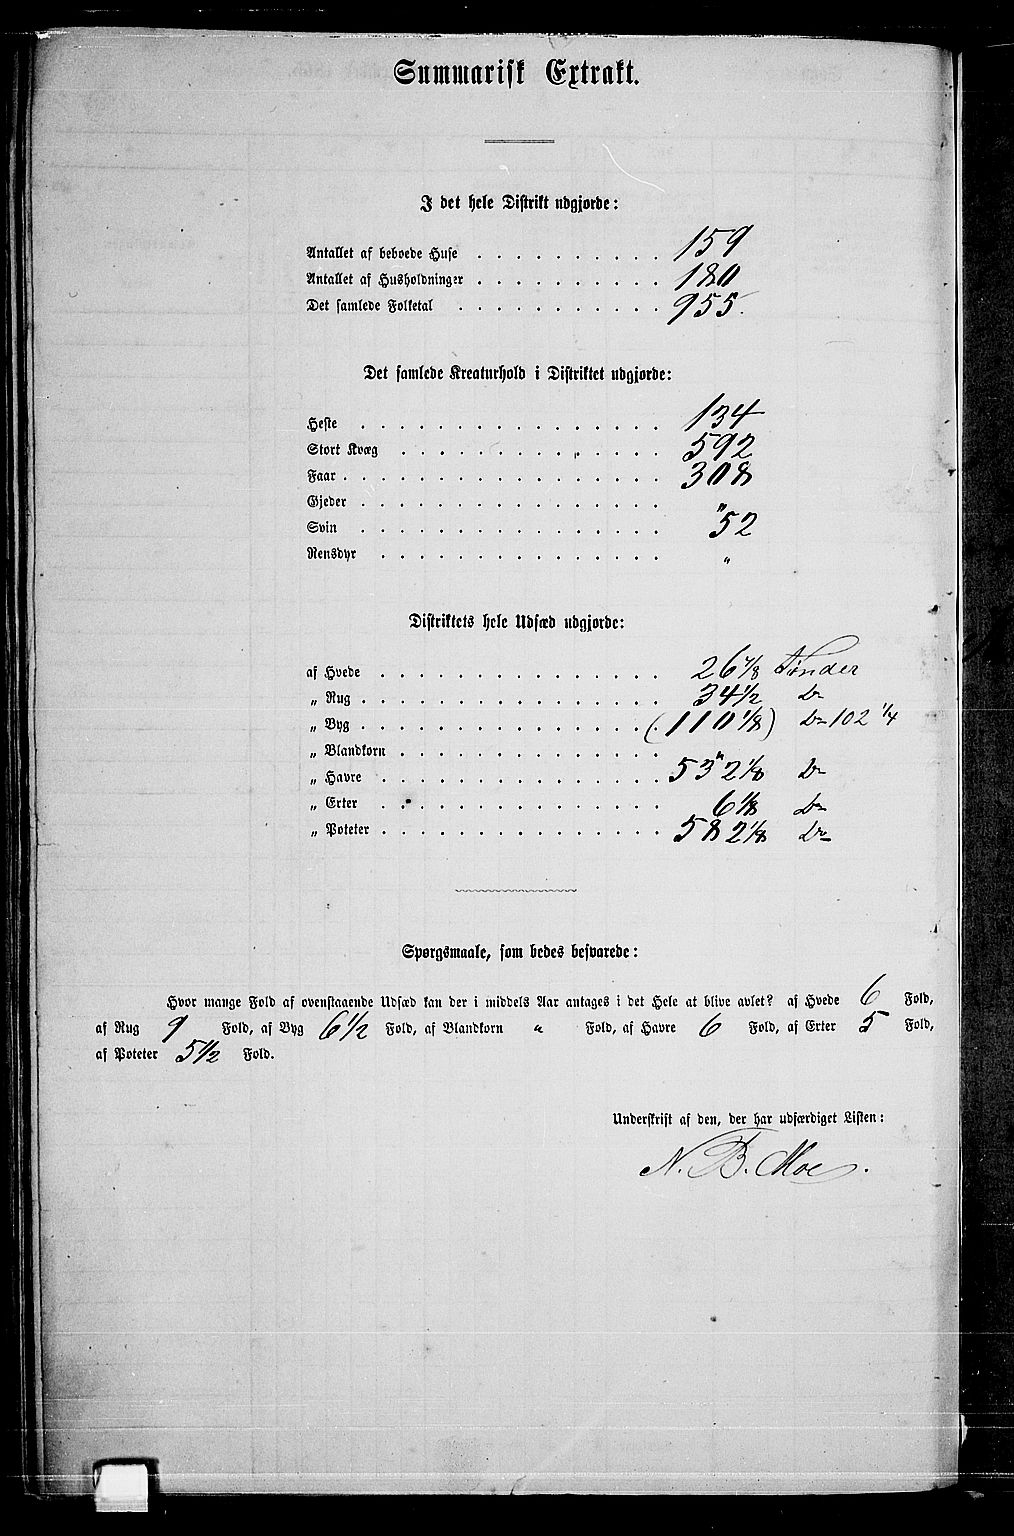 Summarisk Extrakt.
I det hele Distrikt udgjorde:
Antallet af beboede Huse . . . . . . . . . . 159
Antallet af Husholdninger . . . . . . . . . . 180
Det samlede Folketal . . . . . . . . . . . 955.
Det samlede Kreaturhold i Distriktet udgjorde:
Heste . . . . . . . . . . . . . . . 134
Stort Kvæg . . . . . . . . . . . . . 592
Faar . . . . . . . . . . . . . . . . 308
Gjeder . . . . . . . . . . . . . . . "
Svin . . . . . . . . . . . . . . . 52
Rensdyr . . . . . . . . . . . . . . "
Distriktets hele Udsæd udgjorde:
af Hvede . . . . . . . . . . . . . . 26 7/8 Tønder
„ Rug . . . . . . . . . . . . . . . 34 1/2 Do
„ Byg . . . . . . . . . . . . . . . (110 1/8) Do 102 1/4
„ Blandkorn . . . . . . . . . . . . . "
„ Havre . . . . . . . . . . . . . . 532 1/8 Do
„ Erter . . . . . . . . . . . . . . 6 1/8 Do
„ Poteter . . . . . . . . . . . . . . 582 1/8 Do
Spørgsmaale, som bedes besvarede:
Hvor mange Fold af ovenstaaende Udsæd kan der i middels Aar antages i det Hele at blive avlet? af Hvede 6 Fold,
af Rug 9 Fold, af Byg 6 1/2 Fold, af Blandkorn " Fold, af Havre 6 Fold, af Erter 5 Fold,
af Poteter 5 1/2 Fold.
Underskrift af den, der har udfærdiget Listen:
N. B. Moe.